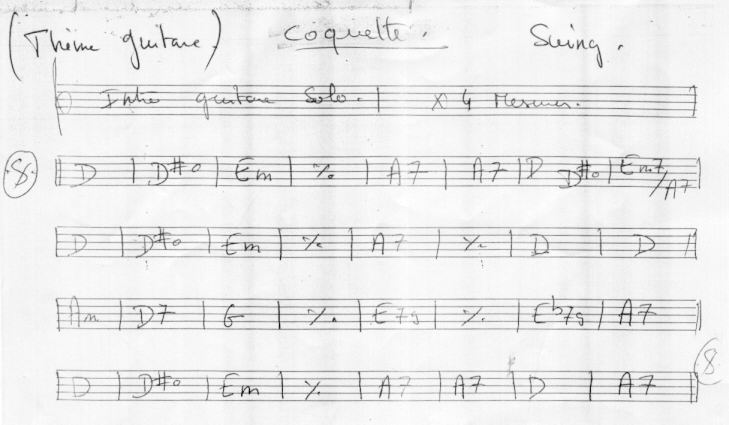 (Thème guitare) Coquette. Swing.
Intro guitare Solo. | x 4 Mesures.
| D | D#o | Em | % | A7 | A7 | D D#o | Em7/A7 |
| D | D#o | Em | % | A7 | % | D | D ||
| Am | D7 | G | % | E79 | % | Eb79 | A7 ||
| D | D#o | Em | % | A7 | A7 | D | A7 ||